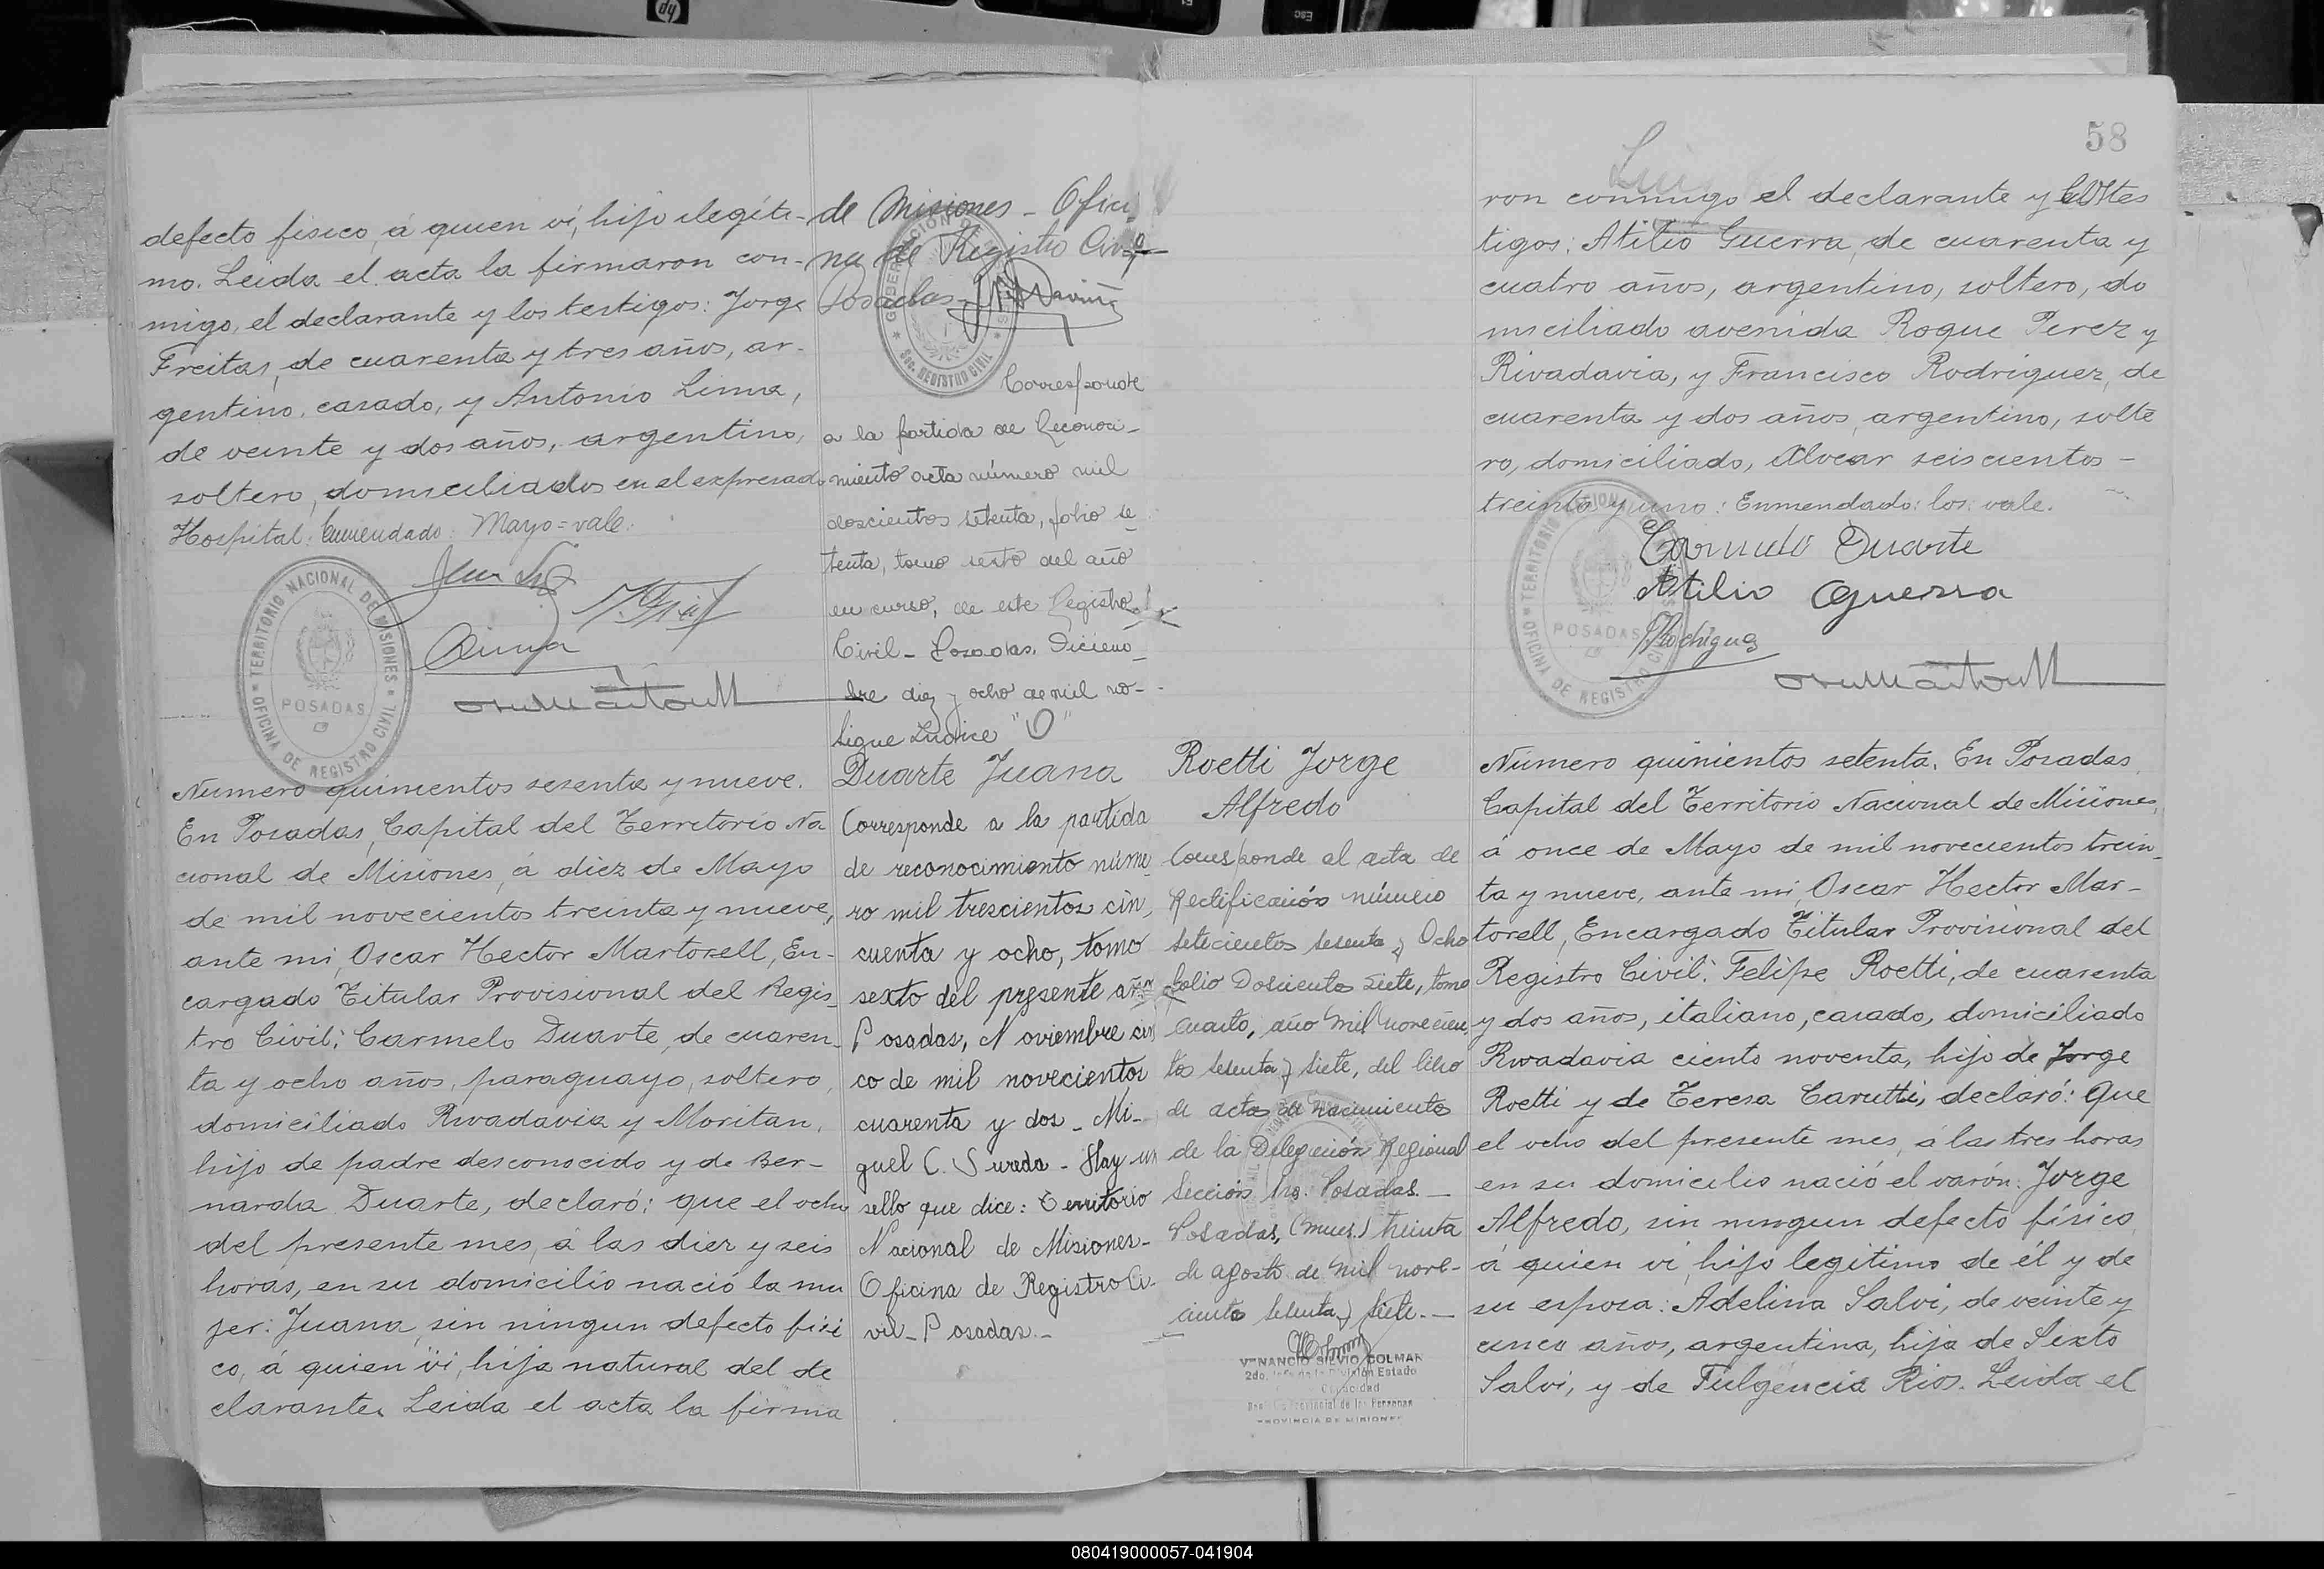 defecto fisico, á quien ví, hijo ilegíti-
mo. Leida el acta la firmaron con-
migo, el declarante y los testigos: Jorge
Freitas, de cuarenta y tres años, ar-
gentino, casado, y Antonio Lima,
de veinte y dos años, argentino,
soltero, domiciliados en el expresado
Hospital: Enmendado: Mayo=vale:
TERRITORIO NACIONAL DE MISIONES
POSADAS
OFICINA DE REGISTRO CIVIL
Numero quinientos sesenta y nueve.
En Posadas, Capital del Territorio Na
cional de Misiones, á diez de Mayo
de mil novecientos treinta y nueve,
ante mi, Oscar Hector Martorell, En-
cargado Titular Provisional del Regis-
tro Civil: Carmelo Duarte, de cuaren-
ta y ocho años, paraguayo, soltero,
domiciliado Rivadavia y Moritan,
hijo de padre desconocido y de Ber-
narda Duarte, declaró: que el ocho
del presente mes, á las diez y seis
horas, en su domicilio nació la mu
jer: Juana, sin ningun defecto fisi
co, á quien vi, hija natural del de
clarante. Leida el acta la firma
de Misiones - Ofici-
na de Registro Civil
Posadas-
Sec. REGISTRO CIVIL
Corresponde
a la partida de Reconoci-
miento acta número mil
doscientos setenta, folio se
tenta, tomo sexto del año
en curso, de este Registro
Civil - Posadas, Diciem-
bre diez y ocho de mil no-
Sigue Indice "O"
Duarte Juana
Corresponde a la partida
de reconocimiento núme
ro mil trescientos cin,
cuenta y ocho, tomo
sexto del presente año
Posadas, Noviembre cin
co de mil novecientos
cuarenta y dos - Mi-
guel C. Sureda - Hay un
sello que dice: Territorio
Nacional de Misiones-
Oficina de Registro Ci-
vil - Posadas.-
Roetti Jorge
Alfredo
Corresponde al acta de
Rectificación número
setecientos sesenta y Ocho
folio Doscientos siete, tomo
cuarto, año mil novecien
tos setenta y siete, del libro
de actas de nacimientos
de la Delegación Regional
Sección Posadas.-
Posadas, (Mnes.) treinta
de agosto de mil nove-
cientos setenta y siete.-
SILVIO COLMAN
Provincial de las Personas
PROVINCIA DE MISIONES
58
ron conmigo el declarante y los tes
tigos: Atilio Guerra, de cuarenta y
cuatro años, argentino, soltero, do
miciliado avenida Roque Perez y
Rivadavia, y Francisco Rodriguez, de
cuarenta y dos años, argentino, solte
ro, domiciliado, Alvear seiscientos -
treinta y uno: Enmendado: los: vale.
Carmelo Duarte
Atilio Guerra
Rodriguez
TERRITORIO
POSADAS
OFICINA DE REGISTRO CIVIL
Número quinientos setenta. En Posadas,
Capital del Territorio Nacional de Misiones,
á once de Mayo de mil novecientos trein-
ta y nueve, ante mi, Oscar Hector Mar-
torell, Encargado Titular Provisional del
Registro Civil: Felipe Roetti, de cuarenta
y dos años, italiano, casado, domiciliado
Rivadavia ciento noventa, hijo de Jorge
Roetti y de Teresa Carutti, declaró: Que
el ocho del presente mes, á las tres horas
en su domicilio nació el varón: Jorge
Alfredo, sin ningun defecto físico,
á quien vi, hijo legitimo de él y de
su esposa: Adelina Salvi, de veinte y
cinco años, argentina, hija de Sixto
Salvi, y de Fulgencia Rios. Leida el
080419000057-041904